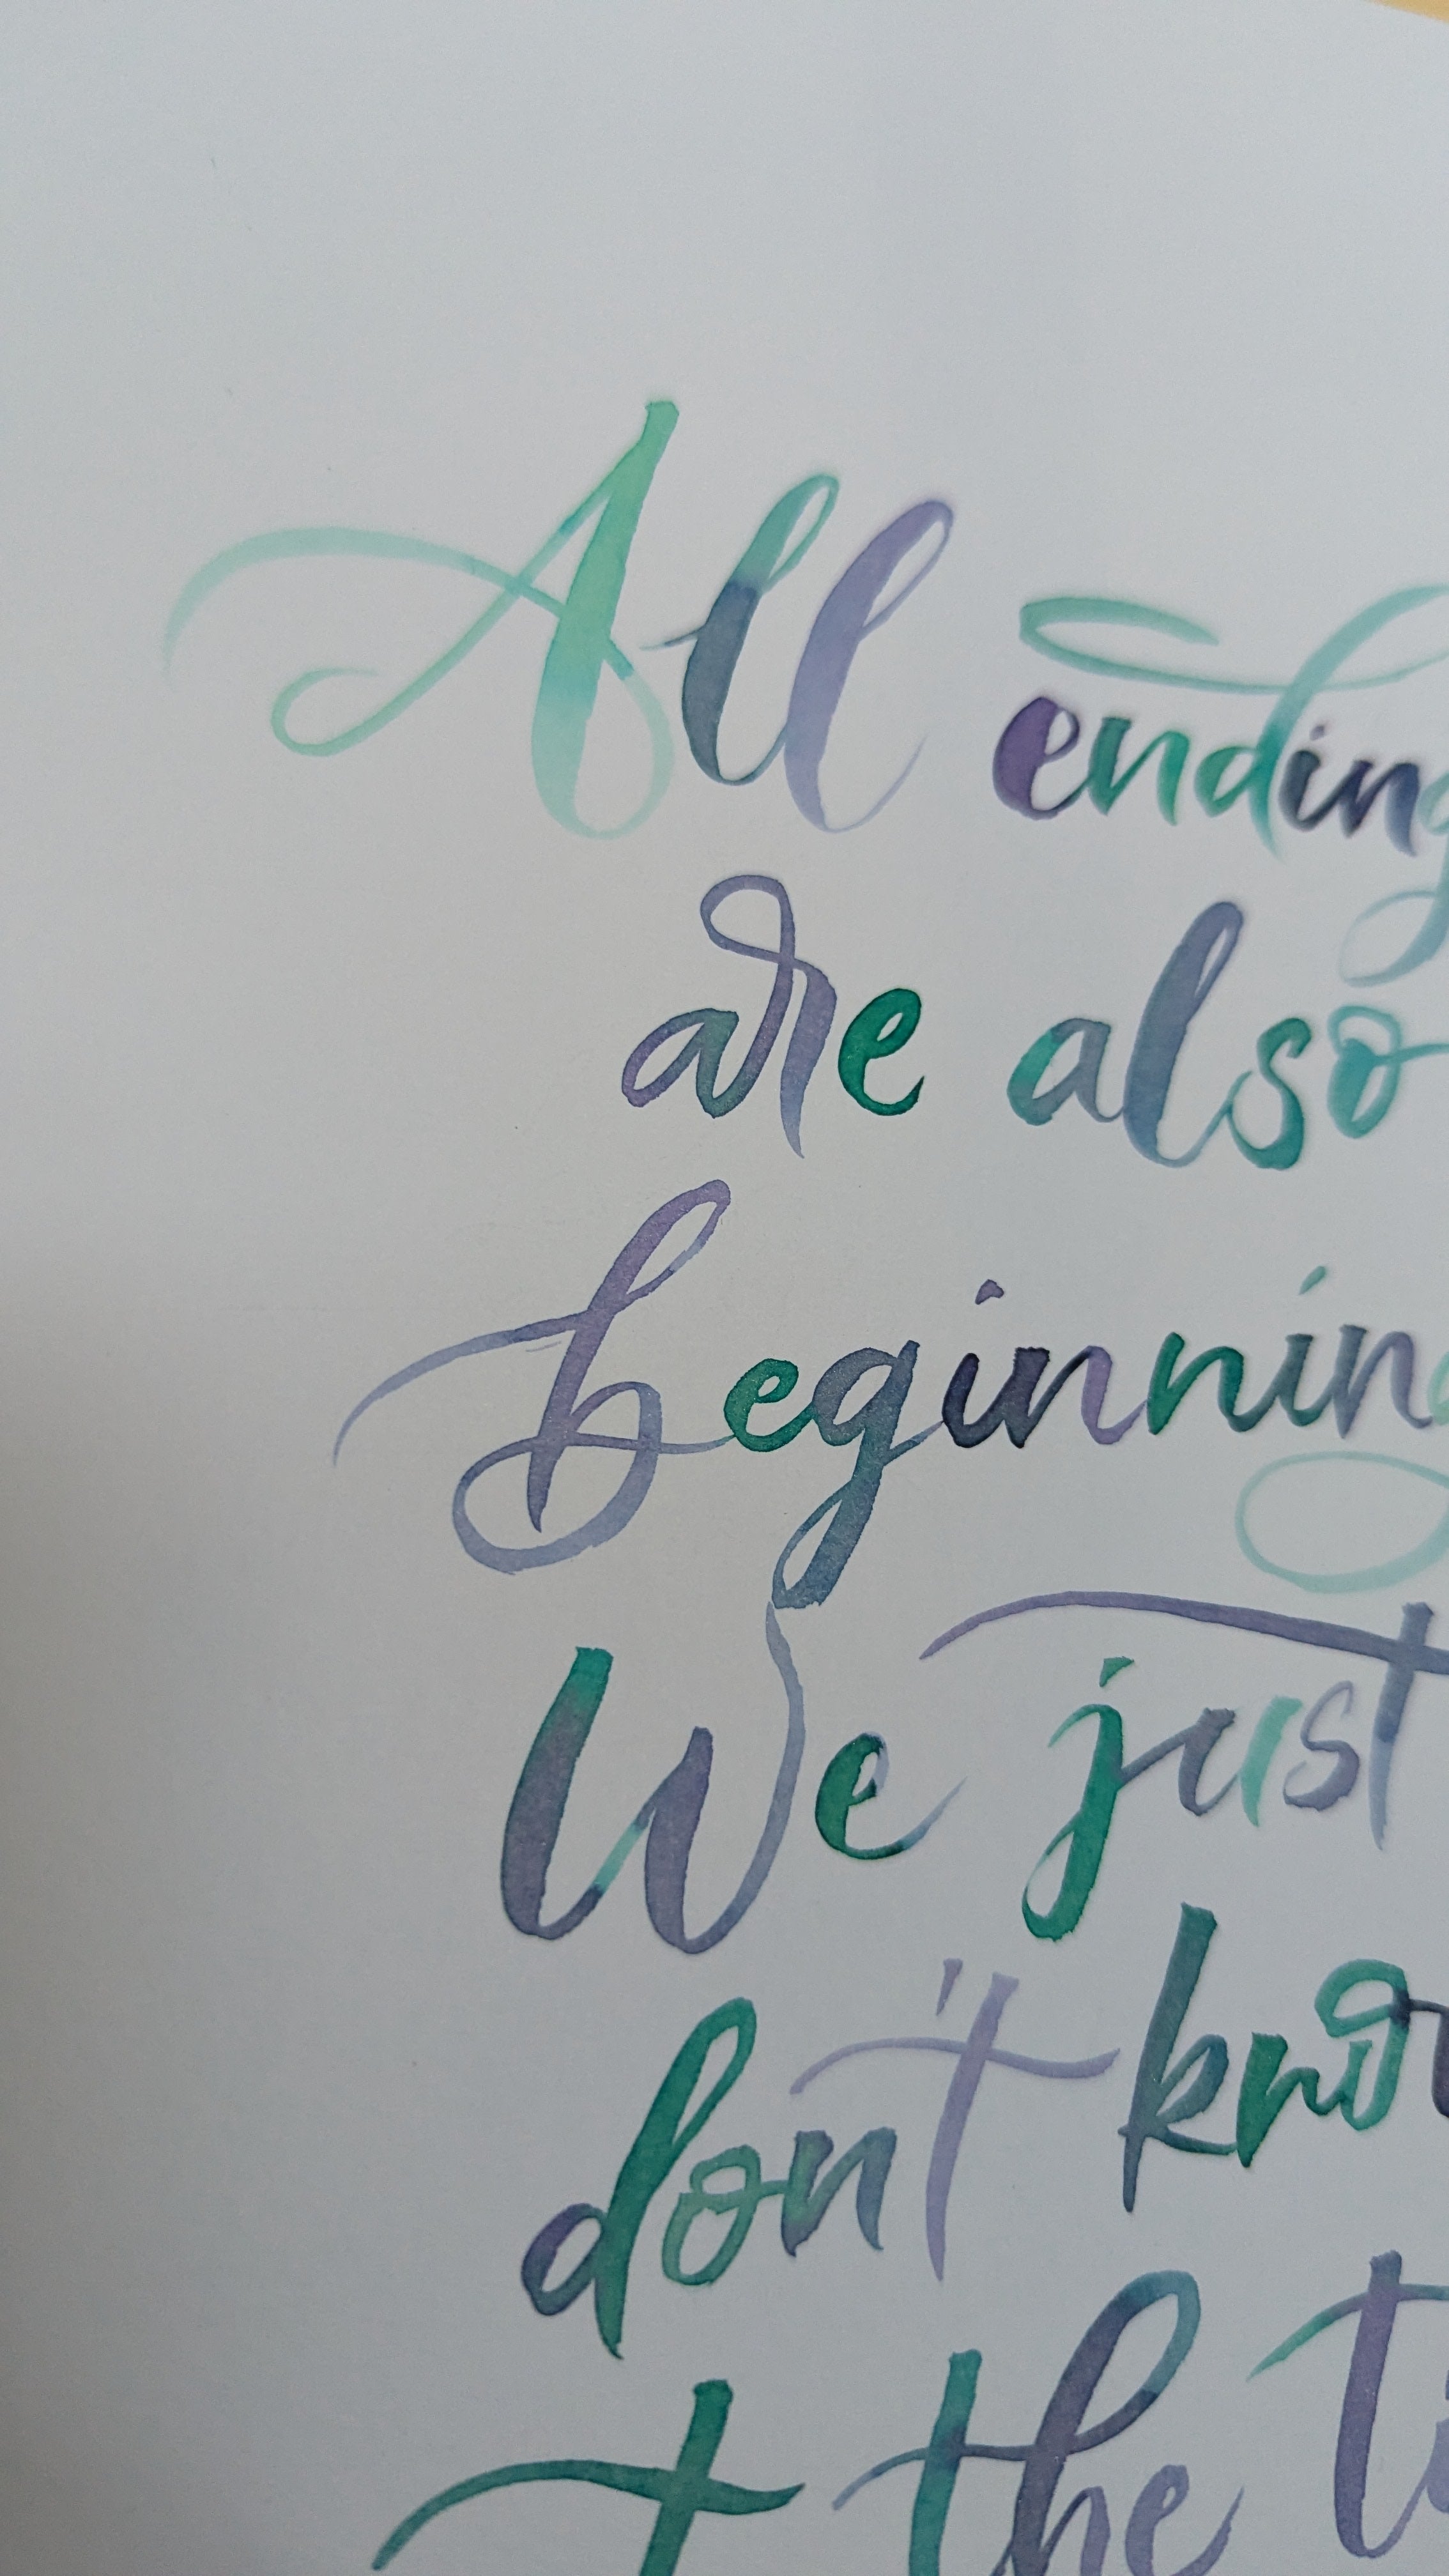 All ending
are also
beginning
We just
don't kno
the